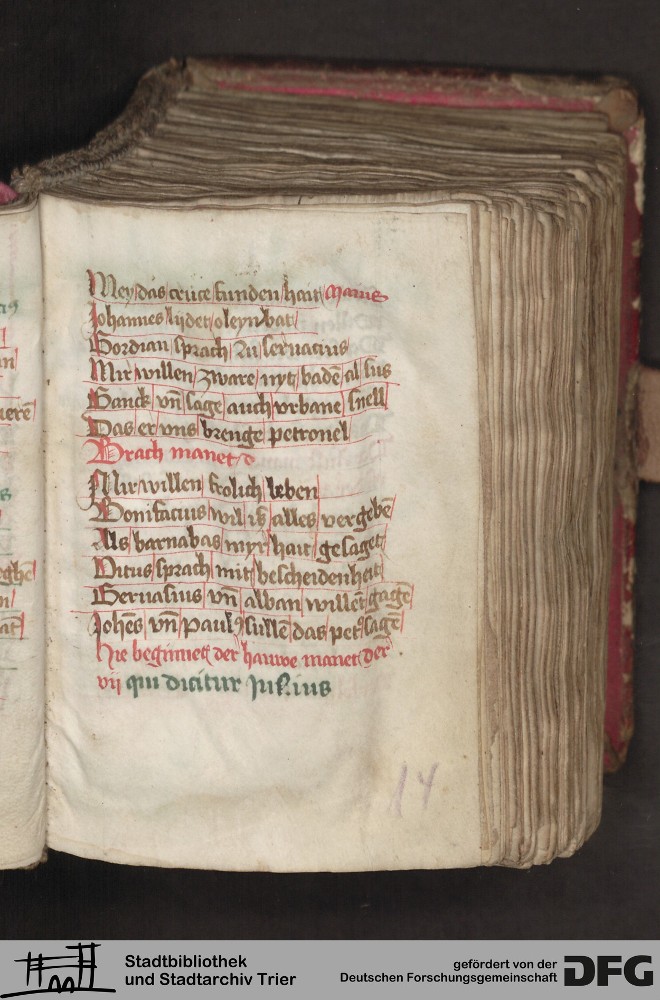 Mey das cruce funden hait Maius
Johannes lydet oleyn bat
Gordian sprach zu seruacius
Mir willen zware nyt badē al sus
Ganck vn̄ sage auch vrbane snell
Das er vns brenge petronel
Brach manet
Mir willen frolich leben
Bonifacius wil is alles vergebē
Als barnabas myr hait gesaget
Vitus sprach mit bescheidenheit
Geruasius vn̄ alban willēt gagē
Johēs vn̄ paulꝰ sullē das petꝰ sagē
Hie beginnet der hauwe manet der
vij qui dicitur Julius
14
Stadtbibliothek
und Stadtarchiv Trier
gefördert von der
Deutschen Forschungsgemeinschaft
DFG